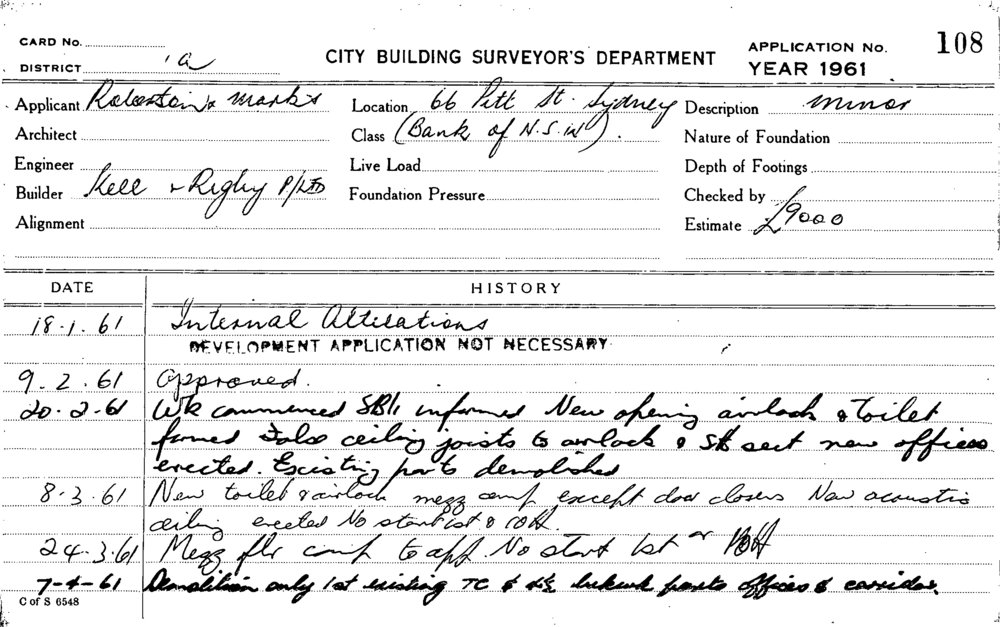 CARD No.
DISTRICT 1a
CITY BUILDING SURVEYOR'S DEPARTMENT
APPLICATION No. 108
YEAR 1961
Applicant Robertson & Marks
Location 66 Pitt St. Sydney
Description Minor
Architect
Class (Bank of N.S.W).
Nature of Foundation
Engineer
Live Load
Depth of Footings
Builder Kell & Rigby P/LTD
Foundation Pressure
Checked by
Alignment
Estimate £9000
DATE HISTORY
18.1.61 Internal Alterations
DEVELOPMENT APPLICATION NOT NECESSARY
9.2.61 Approved.
20.2.61 Wk commenced informed New opening airlock & toilet
formed False ceiling joists to airlock & sect new offices
erected. Existing parts demolished
8.3.61 New toilet & airlock mezz comp except door closers New acoustic
ceiling erected No start 1st &
24.3.61 Mezz flr comp to app. No start 1st or
7-4-61 Demolition only 1st existing TC & parts offices & corridor.
C of S 6548